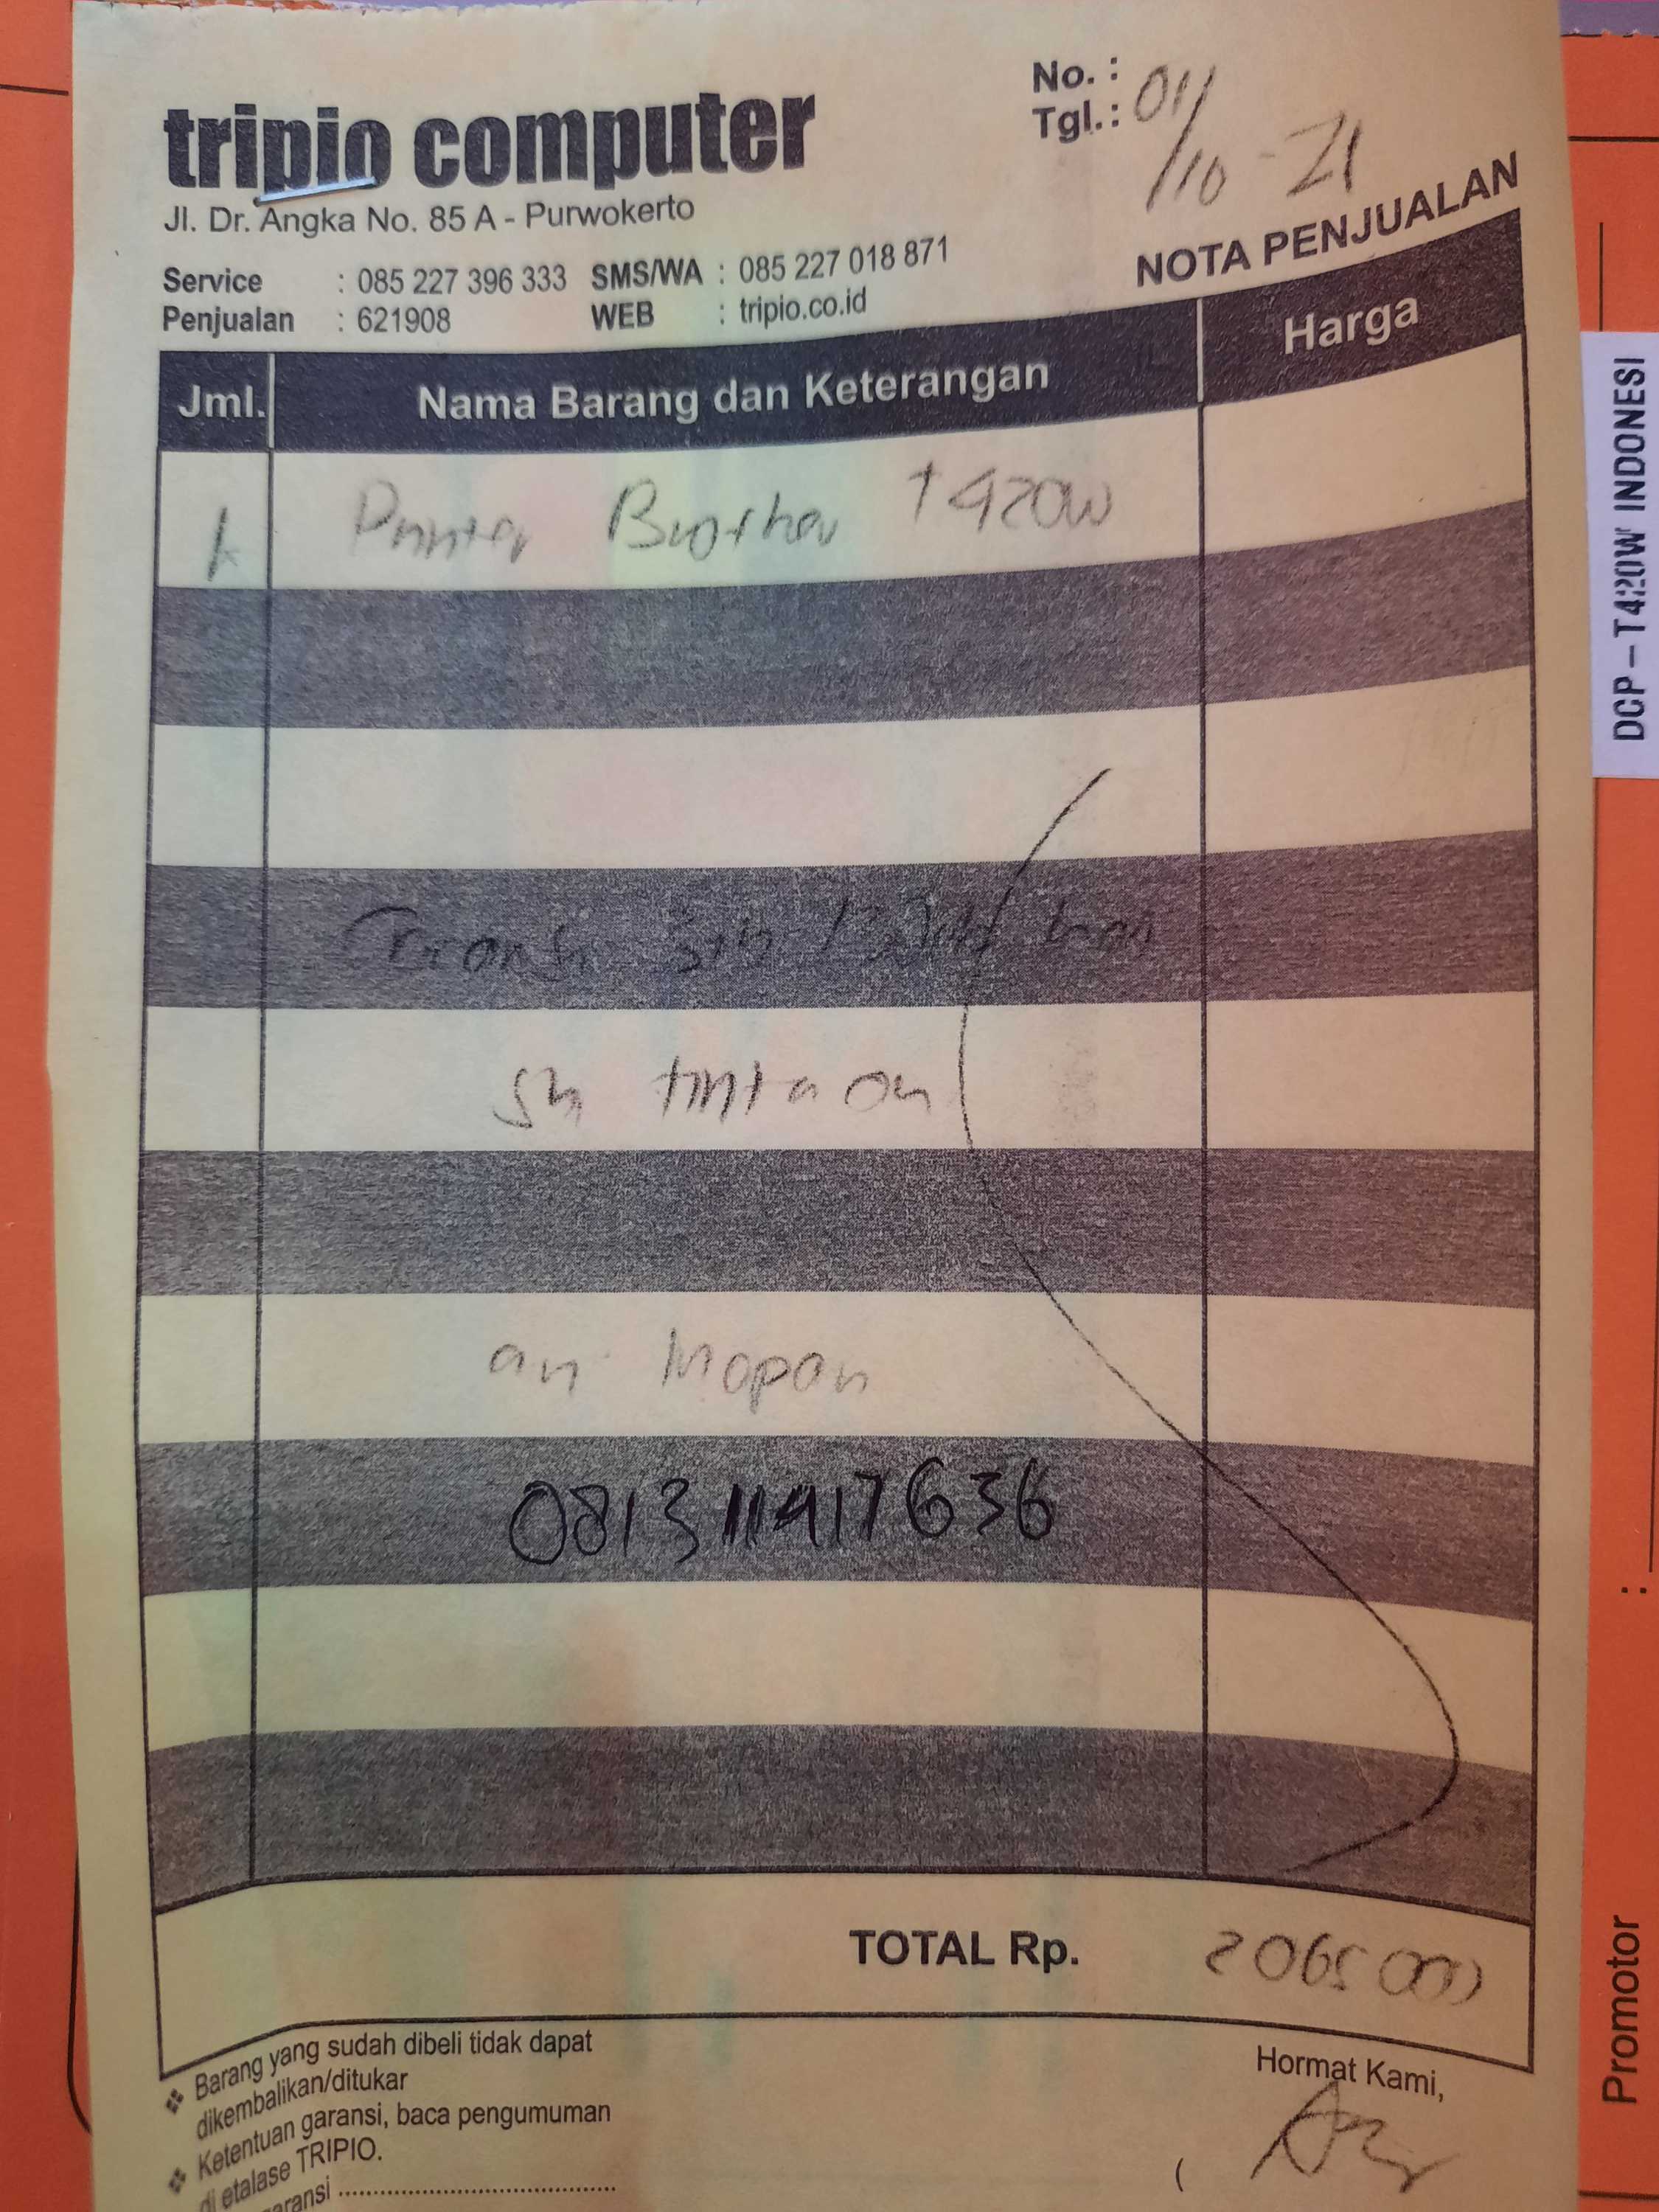 tripio computer
Jl. Dr. Angka No. 85 A - Purwokerto
Service : 085 227 396 333 SMS/WA : 085 227 018 871
Penjualan : 621908 WEB : tripio.co.id
No. :
Tgl. : 01/10-21
NOTA PENJUALAN
Jml. Nama Barang dan Keterangan Harga
1 Printer Brother T420W
Garansi
sn tinta on
an
081311417636
TOTAL Rp. 2065000
Barang yang sudah dibeli tidak dapat
dikembalikan/ditukar
Ketentuan garansi, baca pengumuman
di etalase TRIPIO.
Hormat Kami,
(
DCP - T420W INDONESI
Promotor :